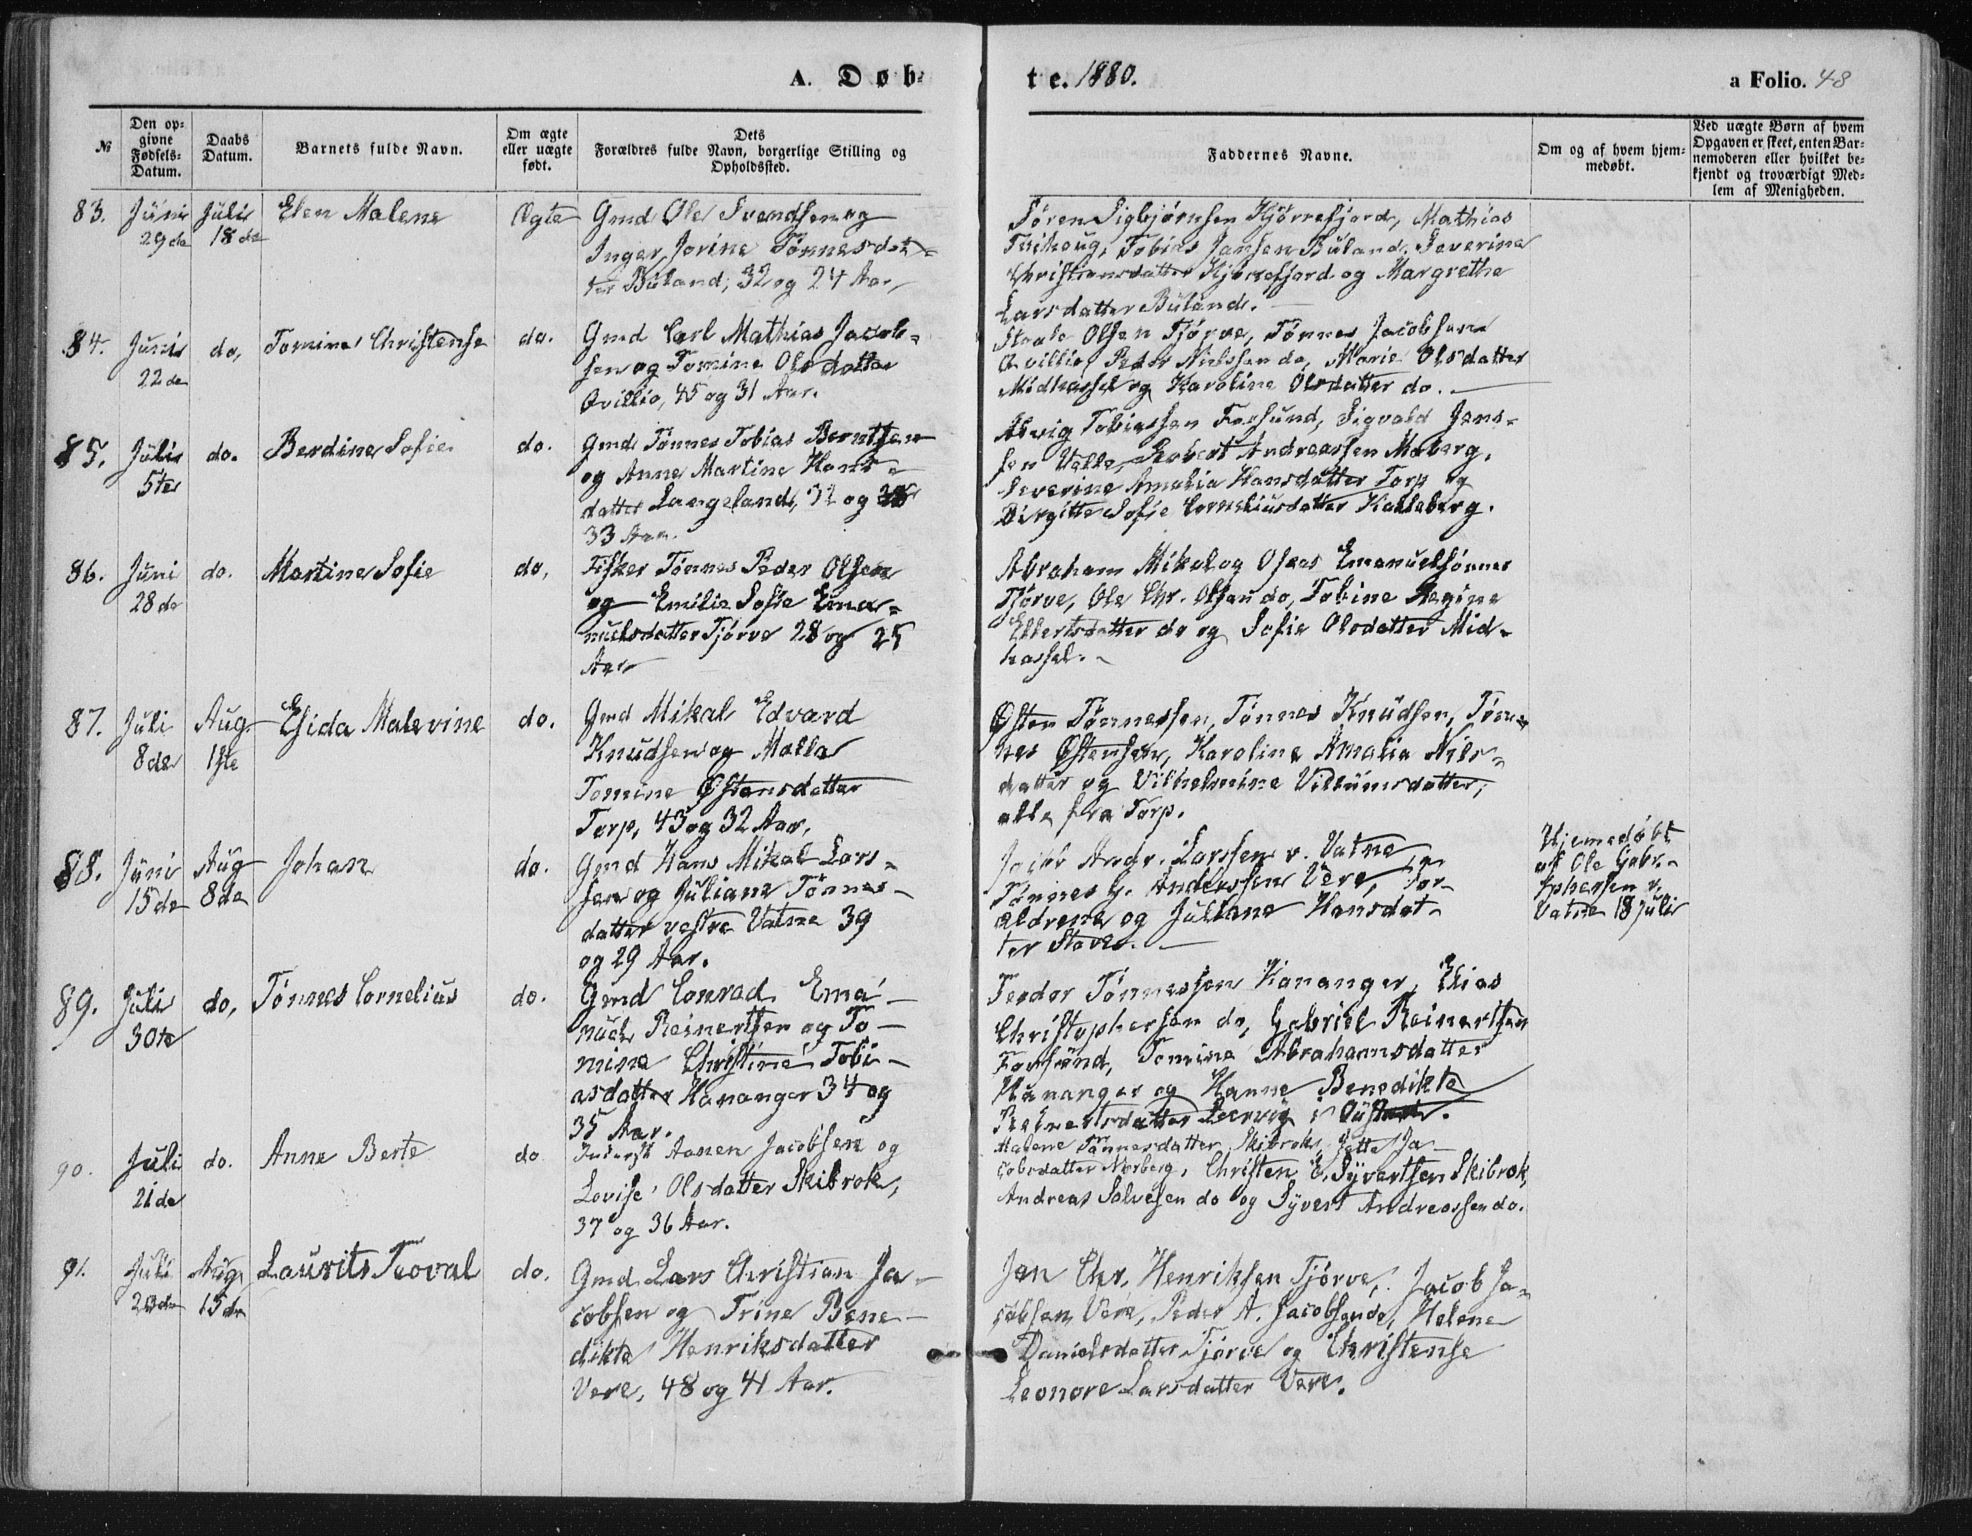 A. Døb=
te. 1880.
a Folio. 48
№
Den op=
givne
Fødsels=
Datum.
Daabs
Datum.
Barnets fulde Navn.
Om ægte
eller uægte
født.
Dets
Forældres fulde Navn, borgerlige Stilling og
Opholdssted.
Faddernes Navne.
Om og af hvem hjem=
medøbt.
Ved uægte Børn af hvem
Opgaven er skeet, enten Bar=
nemoderen eller hvilket be=
kjendt og troværdigt Med=
lem af Menigheden.
83.
Juni
29de
Juli
18de
Elen Malene
Ægte
Gmd Ole Svendsen og
Inger Jorine Tønnesdat=
ter Büland, 32 og 24 Aar,
Søren Sigbjørnsen Kjørrefjord, Mathias
Tobias Jansen Büland, Severine
Christiansdatter Kjørrefjord og Margrethe
Larsdatter Büland.
84.
Juni
22de
do,
Tomine Christense
do.
Gmd Carl Mathias Jacob=
sen og Tomine Olsdatter
Qvillio, 45 og 31 Aar.
Olsen Tjørve, Tønnes Jacobsen
Qvillio, Peder Nielssen do, Marie Olsdatter
Midhassel og Karoline Olsdatter do.
85.
Juli
5te
do.
Berdine Sofie
do.
Gmd Tønnes Tobias Berntsen
og Anne Martine Hans=
datter Langeland, 32 og
33 Aar.
Tobiassen Farsund, Sigvald Jens=
sen Velle, Andreassen Maberg,
Severine Amalia Hansdatter Torp og
Birgitte Sofie Corneliusdatter Kalleberg.
86.
Juni
28de
do.
Martine Sofie
do,
Fisker Tønnes Peder Olsen
og Emilie Sofie Ema=
nuelsdatter Tjørve 28 og 25
Aar
Abraham Mikal og Oseas Emanuelsønner
Tjørve, Ole Chr. Olsen do, Tobine Regine
Ellertsdatter do og Sofie Olsdatter Mid=
hassel.
87.
Juli
8de
Aug.
1ste
Elida Malevine
do.
Gmd Mikal Edvard
Knudsen og Malla
Tomine Østensdatter
Torp, 43 og 32 Aar.
Østen Tønnessen, Tønnes Knudsen, Tøn=
nes Østensen, Karoline Amalia Nils=
datter og Vilhelmine Villumsdatter,
alle fra Torp.
88.
Juni
15de
Aug
8de
Johan
do.
Gmd Hans Mikal Lars=
sen og Juliane Tønnes=
datter vestre Vatne 39
og 29 Aar.
Jacob Larssen v. Vatne
Tønnes G. Anderssen Vere, For=
ældrene og Juliane Hansdat=
ter Stave.
Hjemedøbt
af Ole Gabr.
v.
Vatne 18 Juli
89.
Juli
30te
do,
Tønnes Cornelius
do.
Gmd Conrad Ema=
nuel Reinertsen og To=
mine Christine Tobi=
asdatter Hananger 34 og
35 Aar.
Teodor Tønnessen Hananger, Elias
Christophersen do, Gabriel Reinertsen
Farsund, Tomine Abrahamsdatter
Hananger og Hanne Benedikte
Reinertsdatter Leervig i Oustad.
90.
Juli
21de
do.
Anne Berte
do
Inderst Aanen Jacobsen og
Lovise Olsdatter Skibrok,
37 og 36 Aar.
Malene Tønnesdatter Skibrok, Jette Ja=
cobsdatter Norberg, Christen E. Syvertsen Skibrok,
Andreas Salvesen do og Syvert Andreassen do.
91.
Juli
20de
Aug.
15de
Laurits Teoval
do.
Gmd Lars Christian Ja=
cobsen og Trine Bene=
dikte Henriksdatter
Vere, 48 og 41 Aar.
Jan Chr. Henriksen Tjørve, Jacob Ja=
cobsen Vere, Peder A. Jacobsen do, Helene
Danielsdatter Tjørve og Christense
Leonore Larsdatter Vere.